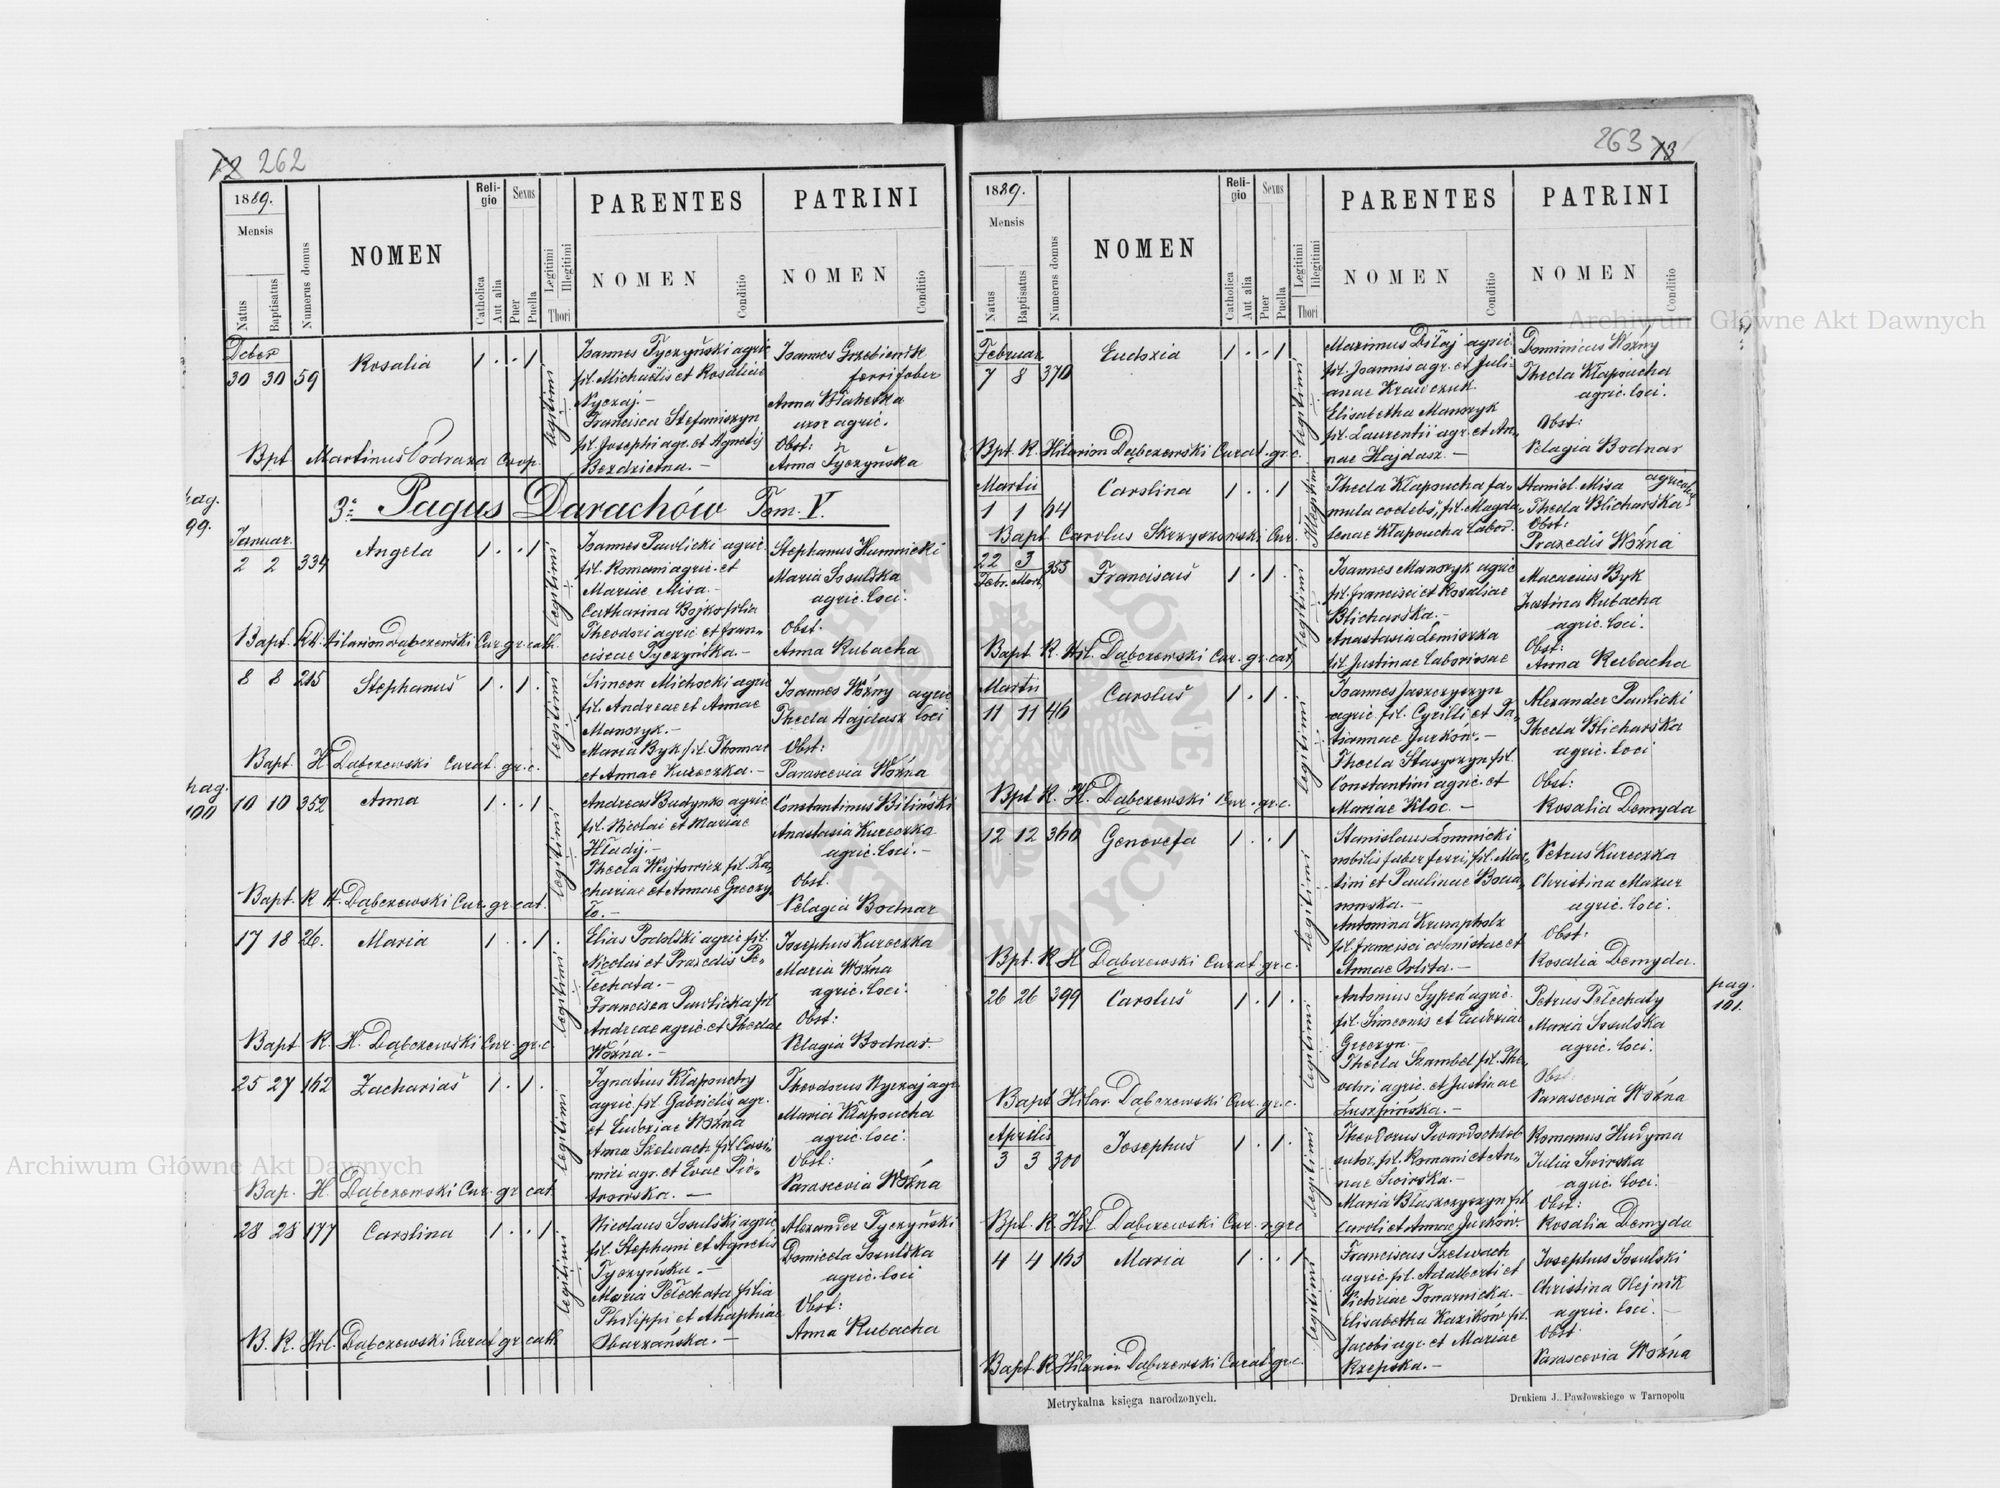 12 262
1889.
Mensis
Natus
Baptisatus
Numerus domus
NOMEN
Religio
Catholica
Aut alia
Sexus
Puer
Puella
Legitimi
Illegitimi
Thori
PARENTES
NOMEN
Conditio
PATRINI
NOMEN
Conditio
Deber
30 30 59
Rosalia
1 . . 1
legitimi
Joannes Tyczyński agric
fil. Michaelis et Rosaliae
Nyczaj.-
Francisca Stefaniszyn
fil. Josephi agr. et Agnetis
Bezdzietna.-
Joannes Grzebienik
ferrifaber
Anna Błahetka
uxor agric.
Obst:
Anna Tyczyńska
Bpt Martinus Vodraza Coop.
3: Pagus Darachów Tom. V.
pag.
99.
Januar.
2 2 334
Angela
1 . . 1
legitimi
Joannes Pawlicki agric.
fil. Romani agric. et
Mariae Misa.-
Catharina Bojko filia
Theodori agric et Fran-
ciscae Tyczyńska.-
Stephanus Humnicki
Maria Sosulska
agric. loci.
Obst.
Anna Rubacha
Bapt. Hilarion Dąbczewski Cur. gr. cath.
8 8 215
Stephanus
1 . 1 .
legitimi
Simeon Michocki agric
fil. Andreae et Annae
Manszyk.-
Maria Byk fil. Thomae
et Annae Kureczka.-
Joannes Woźny agric
Thecla Hajdasz loci
Obst:
Parascevia Woźna
Bapt H Dąbczewski Curat. gr. c.
pag.
100
10 10 352
Anna
1 . . 1
legitimi
Andreas Budynko agric
fil. Nicolai et Mariae
Hładij.-
Thecla Wojtowicz fil. Za-
chariae et Annae Greczy-
ło.-
Constantinus Biliński
Anastasia Kureczka
agric. loci.-
Obst.
Pelagia Bodnar
Bapt. R H. Dąbczewski Cur. gr. cat.
17 18 26.
Maria
1 . . 1 .
legitimi
Elias Podolski agric fil.
Nicolai et Praxedis Pe-
łechata.-
Francisca Pawlicka fil
Andreae agric. et Theclae
Woźna.-
Josephus Kureczka
Maria Woźna
agric. loci.
Obst:
Pelagia Bodnar
Bapt R. H. Dąbczewski Cur. gr. c.
25 27 162
Zacharias
1 . 1 .
legitimi
Ignatius Kłapouchy
agric. fil. Gabrielis agr.
et Eudoxiae Woźna
Anna Szelwach fil. Casi-
miri agr. et Evae Pio-
trowska.-
Theodorus Nyczaj agr.
Maria Kłapoucha
agric. loci.
Obst:
Parascevia Woźna
Bap. H. Dąbczewski Cur. gr. cat.
28 28 177
Carolina
1 . . 1 .
legitimi
Nicolaus Sosulski agric
fil. Stephani et Agnetis
Tyczyńska.-
Maria Pełechata filia
Philippi et Ahaphiae
Obarzańska.-
Alexander Tyczyński
Domicela Sosulska
agric. loci
Obst:
Anna Rubacha
B. R. Hil. Dąbczewski Curat gr. cath.
263 13
1889.
Mensis
Natus
Baptisatus
Numerus domus
NOMEN
Religio
Catholica
Aut alia
Sexus
Puer
Puella
Legitimi
Illegitimi
Thori
PARENTES
NOMEN
Conditio
PATRINI
NOMEN
Conditio
Februar.
7 8 370
Eudoxia
1 . . 1
legitimi
Maximus Diłaj agric.
fil. Joannis agr. et Juli-
anae Krawczuk
Elisabetha Manszyk
fil. Laurentii agr. et An-
nae Hajdasz.-
Dominicus Woźny
Thecla Kłapoucha
agric. loci.
Obst:
Pelagia Bodnar
Bpt. R. Hilarion Dąbczewski Curat. gr. c.
Martii
1 1 64
Carolina
1 . . 1
Illegitimi
Thecla Kłapoucha fa-
mula coelebs, fil. Magda-
lenae Kłapoucha labor.
Stanisl. Misa agricolae
Thecla Blicharska
Obst:
Praxedis Woźna
Bapt Carolus Skrzyszowski Cur.
22 3 353
Febr. Mart.
Franciscus
1 . 1 .
legitimi
Joannes Manszyk agric
fil. Francisci et Rosaliae
Blicharska.-
Anastasia Lemiszka
fil Justinae laboriosae
Macarius Byk
Justina Rubacha
agric. loci.
Obst:
Anna Rubacha
Bapt R. Hil. Dąbczewski Cur. gr. cat.
Martii
11 11 46
Carolus
1 . 1 .
legitimi
Joannes Jaszczyszyn
agric. fil. Cyrilli et Ta-
tiannae Jurków.-
Thecla Stasyszyn fil.
Constantini agric. et
Mariae Kłoc.-
Alexander Pawlicki
Thecla Blicharska
agric. loci
Obst:
Rosalia Demyda
Bpt R. H. Dąbczewski Cur. gr. c.
12 12 360
Genovefa
1 . . 1
legitimi
Stanislaus Łomnicki
nobilis faber ferri, fil. Mar-
tini et Paulinae
Antonina Krumpholz
fil. Francisci colonistae et
Annae
Petrus Kureczka
Christina Mazur
agric. loci.
Obst:
Rosalia Demyda.
Bpt. R H Dąbczewski Curat. gr. c.
pag.
101.
26 26 399
Carolus
1 . 1 .
legitimi
Antonius Sypeń agric.
fil. Simeonis et Eudoxiae
Greczyn.-
Thecla Szambel fil. The-
odori agric. et Justinae
Luszpińska.-
Petrus Pełechaty
Maria Sosulska
agric. loci.
Obst
Parascevia Woźna
Bapt Hilar. Dąbczewski Cur. gr. c.
Aprilis
3 3 300
Josephus
1 . 1 .
legitimi
Theodorus Twardochleb
sutor, fil. Romani et An-
nae Swirska.-
Maria Błaszczyszyn fil.
Caroli et Annae Jurków.
Romanus Hudyma
Julia Swirska
agric. loci.
Obst:
Rosalia Demyda
Bpt. R. Hil. Dąbczewski Cur. gr. c
4 4 163
Maria
1 . . 1
legitimi
Franciscus Szelwach
agric. fil. Adalberti et
Victoriae Towarnicka.-
Elisabetha Kuzików fil.
Jacobi agr. et Mariae
Rzepska.-
Josephus Sosulski
Christina Olejnik
agric. loci.-
Obst
Parascevia Woźna
Bapt. R Hilarion Dąbczewski Curat. gr. c.
Metrykalna księga narodzonych.
Drukiem J. Pawłowskiego w Tarnopolu
Archiwum Główne Akt Dawnych
Archiwum Główne Akt Dawnych
ARCHIWUM GŁÓWNE AKT DAWNYCH